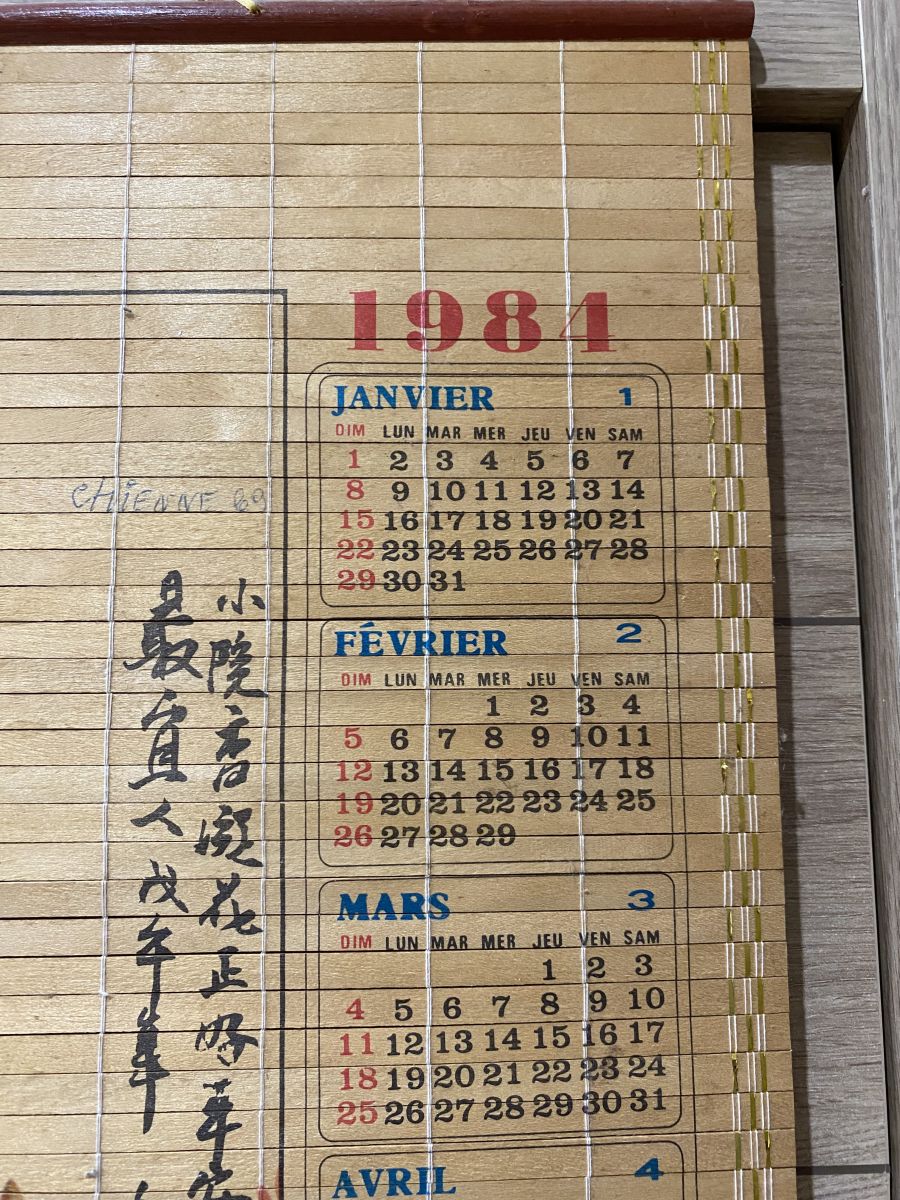 1984
JANVIER 1
DIM LUN MAR MER JEU VEN SAM
1 2 3 4 5 6 7
8 9 10 11 12 13 14
15 16 17 18 19 20 21
22 23 24 25 26 27 28
29 30 31
FÉVRIER 2
DIM LUN MAR MER JEU VEN SAM
1 2 3 4
5 6 7 8 9 10 11
12 13 14 15 16 17 18
19 20 21 22 23 24 25
26 27 28 29
MARS 3
DIM LUN MAR MER JEU VEN SAM
1 2 3
4 5 6 7 8 9 10
11 12 13 14 15 16 17
18 19 20 21 22 23 24
25 26 27 28 29 30 31
AVRIL 4
CHIENNE 69
小院香凝花正好平安
最宜人戊午年